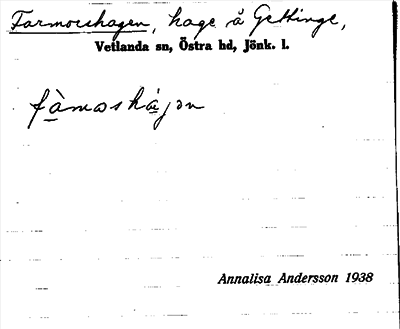 Farmorshagen, hage å Gettinge,
Vetlanda sn, Östra hd, Jönk. l.
fàmoshájən
Annalisa Andersson 1938